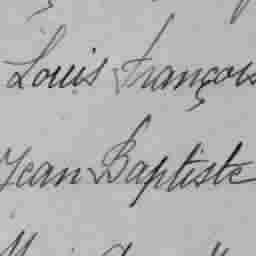 Louis François
Jean Baptiste